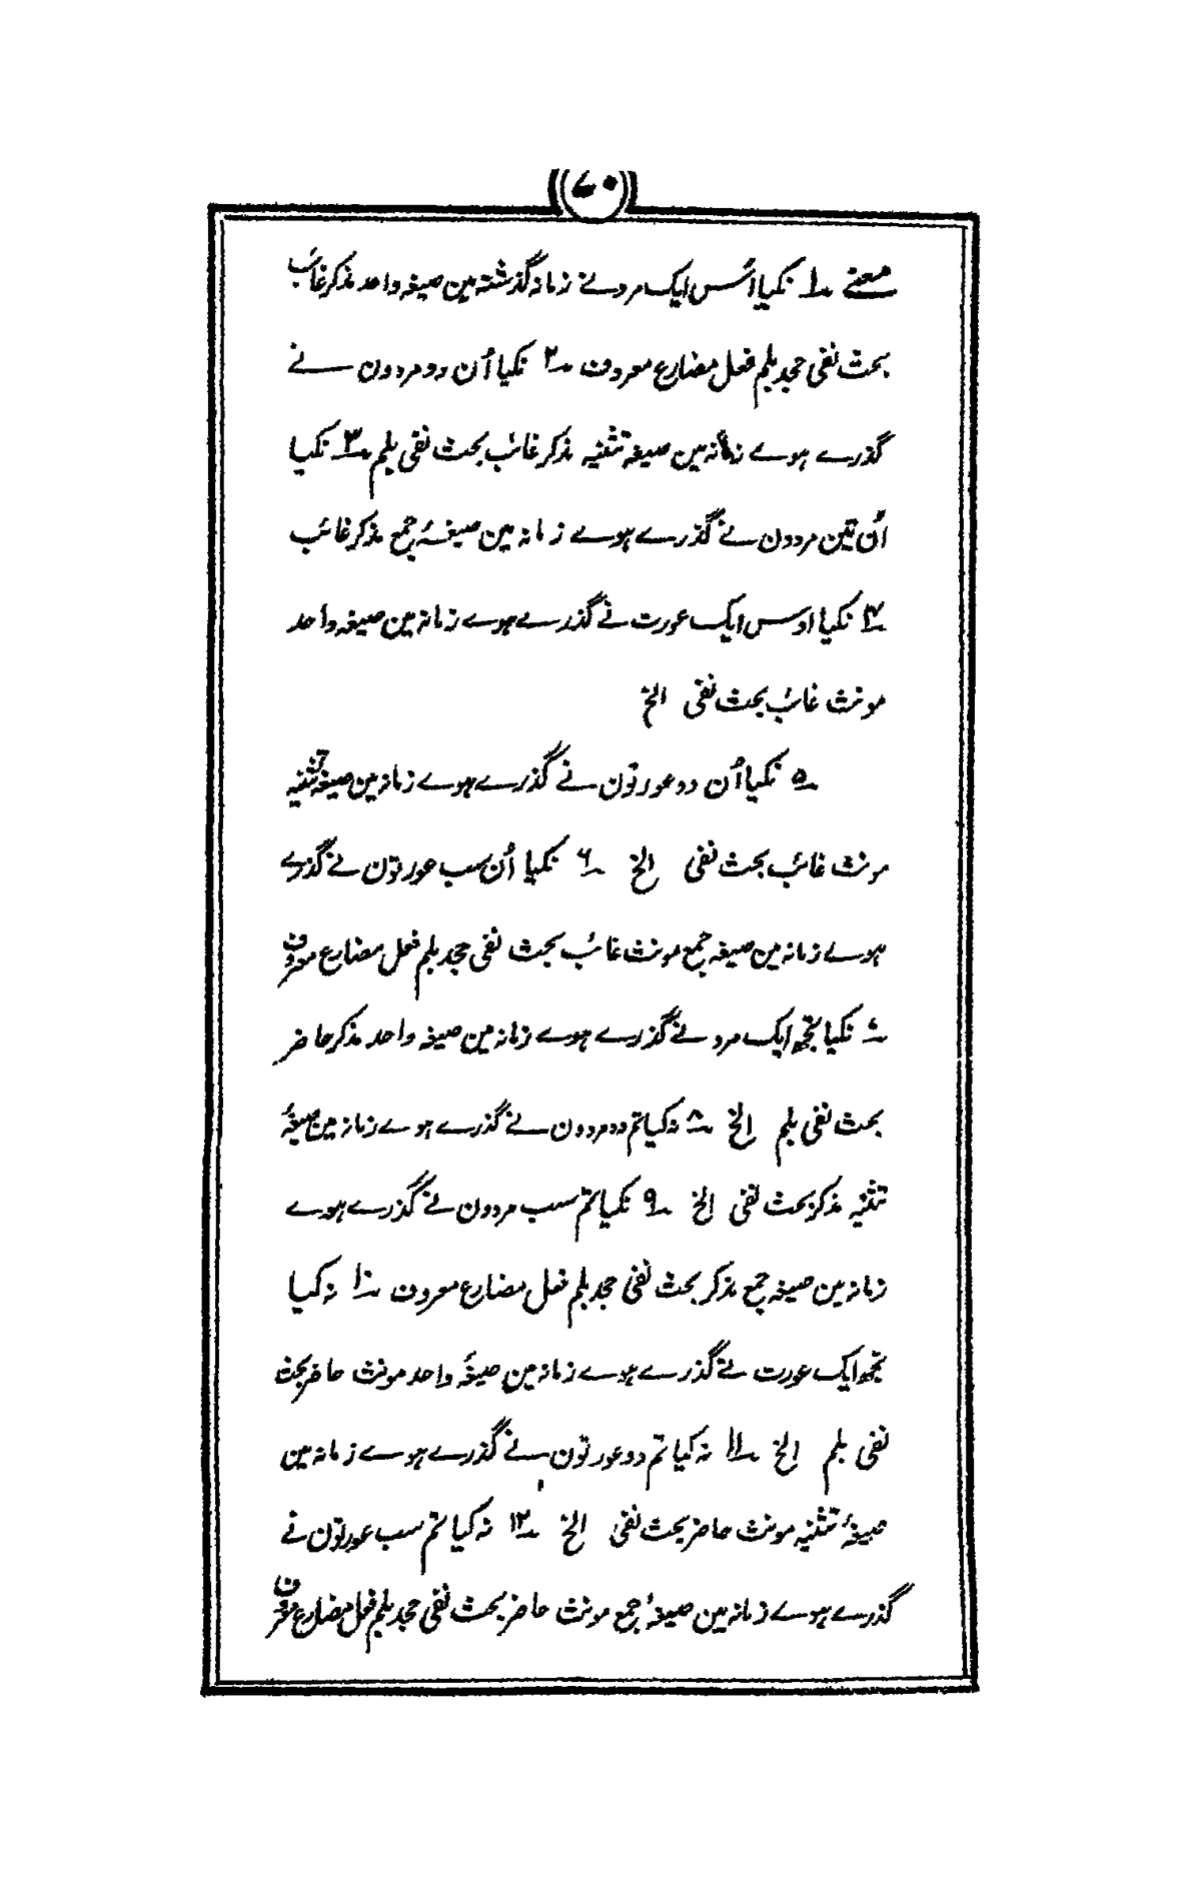 ۷۰
معنے ۱؎ نکیا اُس ایک مرد نے زمانہ گذشتہ مین صیغہ واحد مذکر غائب
بحث نفی جحد بلم فعل مضارع معروف ۲؎ نکیا اُن دو مردون نے
گذرے ہوے زمانہ مین صیغہ تثنیہ مذکر غائب بحث نفی بلم ۳؎ نکیا
اُن تین مردون نے گذرے ہوے زمانہ مین صیغۂ جمع مذکر غائب
۴؎ نکیا اوس ایک عورت نے گذرے ہوے زمانہ مین صیغہ واحد
مونث غائب بحث نفی الخ
۵؎ نکیا اُن دو عورتون نے گذرے ہوے زمانہ مین صیغہ تثنیہ
مونث غائب بحث نفی الخ ۶؎ نکیا اُن سب عورتون نے گذرے
ہوے زمانہ مین صیغہ جمع مونث غائب بحث نفی جحد بلم فعل مضارع معروف
۷؎ نکیا تجھ ایک مرد نے گذرے ہوے زمانہ مین صیغہ واحد مذکر حاضر
بحث نفی بلم الخ ۸؎ نہ کیا تم دو مردون نے گذرے ہوے زمانہ مین صیغۂ
تثنیہ مذکر بحث نفی الخ ۹؎ نکیا تم سب مردون نے گذرے ہوے
زمانہ مین صیغہ جمع مذکر بحث نفی جحد بلم فعل مضارع معروف ۱۰؎ نہ کیا
تجھ ایک عورت نے گذرے ہوے زمانہ مین صیغۂ واحد مونث حاضر بحث
نفی بلم الخ ۱۱؎ نہ کیا تم دو عورتون نے گذرے ہوے زمانہ مین
صیغۂ تثنیہ مونث حاضر بحث نفی الخ ۱۲؎ نہ کیا تم سب عورتون نے
گذرے ہوے زمانہ مین صیغۂ جمع مونث حاضر بحث نفی جحد بلم فعل مضارع معروف